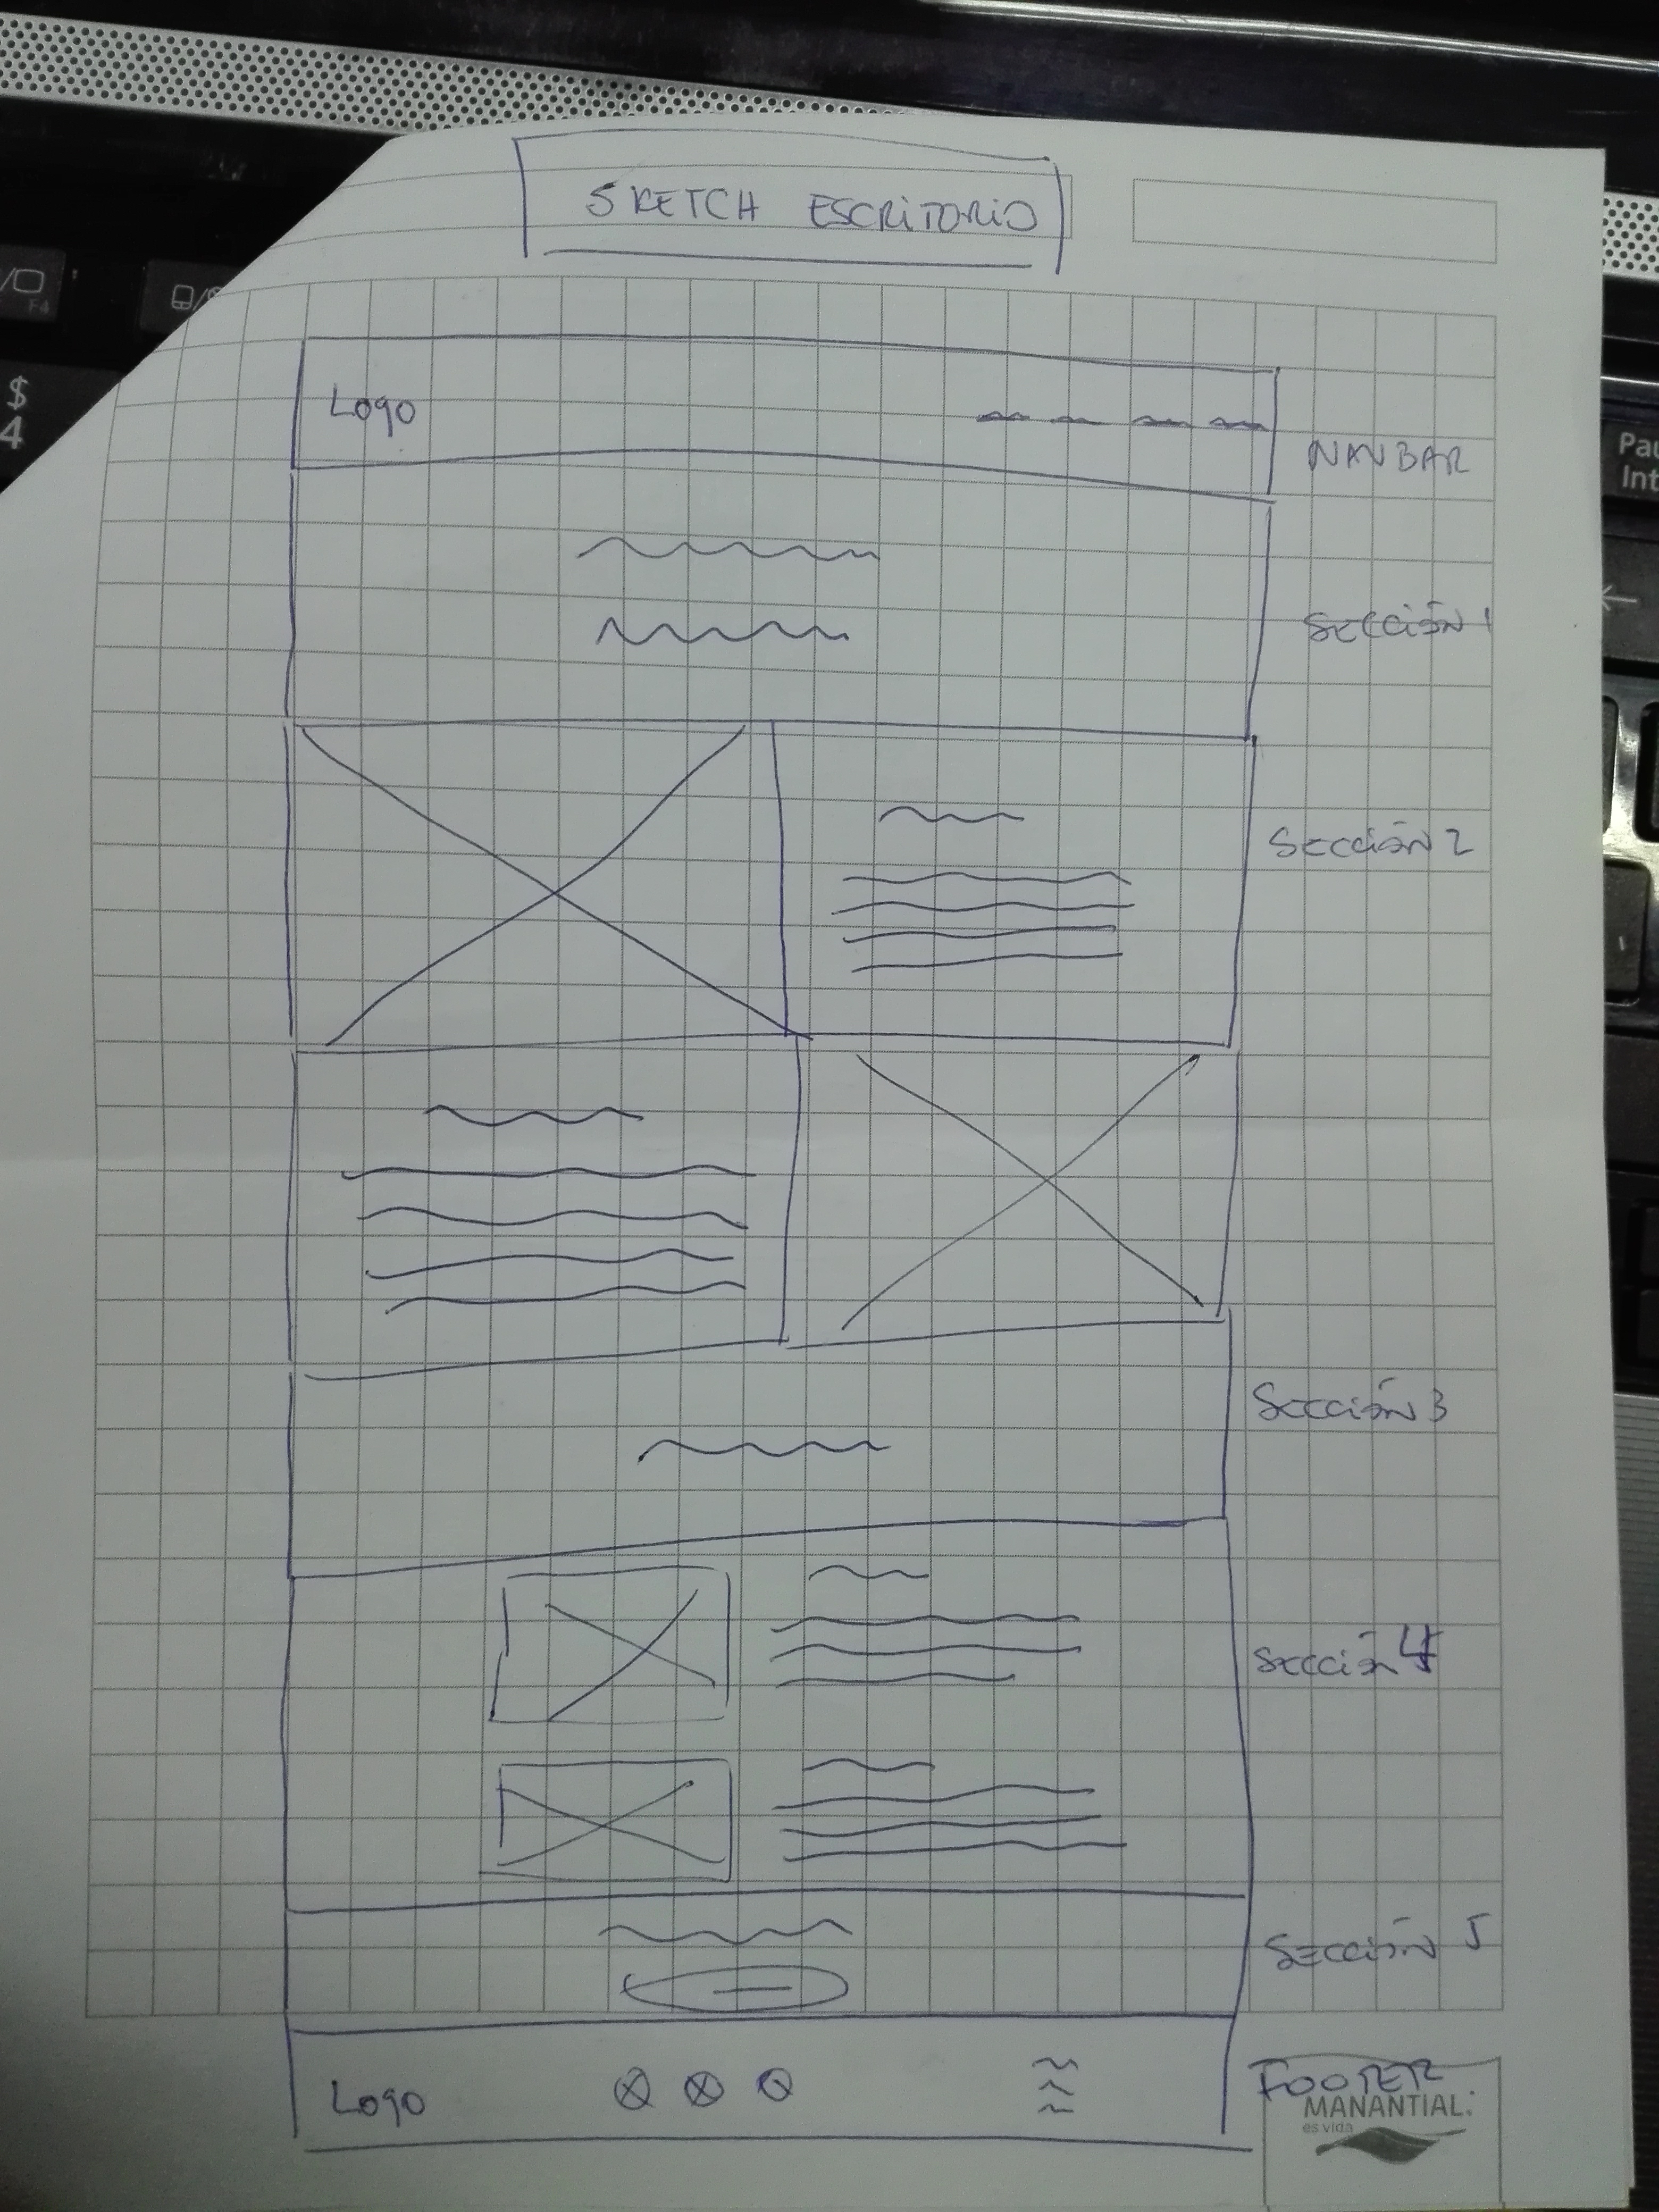 SKETCH ESCRITORIO
F4
$
4
Logo
NAVBAR
Pau
Int
Sección 1
Sección 2
Sección 3
Sección 4
Sección 5
Logo
FOOTER
MANANTIAL.
es vida